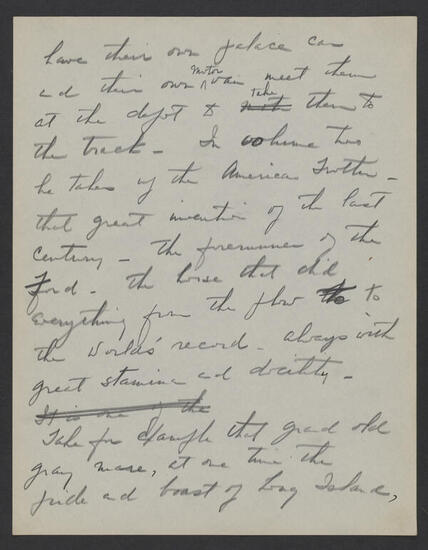 have their own palace car
ad their own motor van meet them
at the depot to take them to
the track - In volume two
he takes up the American Trotter -
that great invention of the last
century - the forerunner of the
Ford - the horse that did
everything from the plow to
the World's record - always with
great stamina ad docility -
It is one of the
Take for Example that grand old
gray mare, at one time the
pride and boast of Long Island,